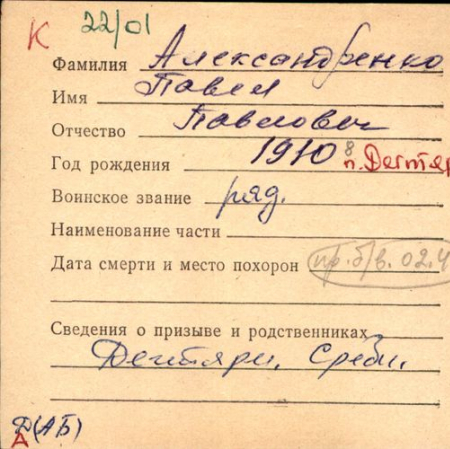 К 22/01
Фамилия Александренко
Имя Павел
Отчество Павлович
Год рождения 1910 8 п. Дегтяр
Воинское звание ряд.
Наименование части
Дата смерти и место похорон пр. б/в. 02.4
Сведения о призыве и родственниках
Дегтяри, Среби.
Д(АБ)
А